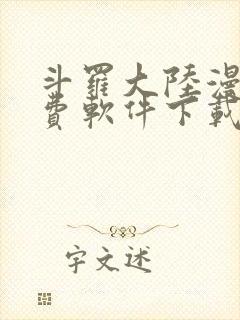 斗羅大陸漫
費軟件下載
字文述